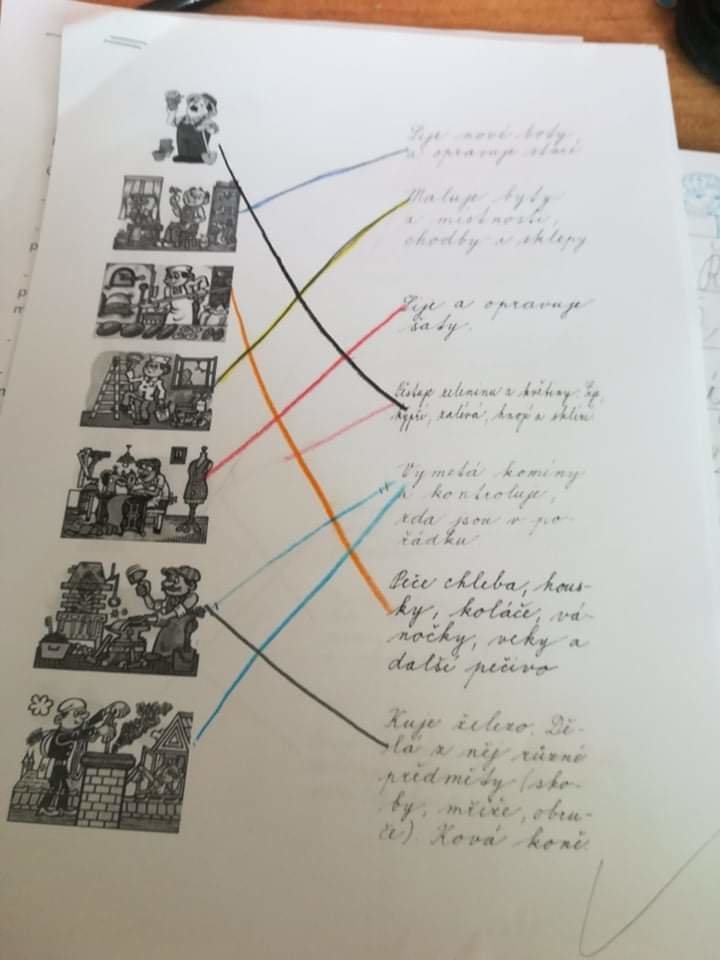 Šije nové boty
a opravuje staré
Maluje byty
a místnosti,
chodby i sklepy
Šije a opravuje
šaty.
Pěstuje zeleninu a květiny.
kypří, zalévá, hnojí a sklízí
Vymetá komíny
a kontroluje,
zda jsou v po-
řádku
Peče chleba, hous-
ky, koláče, vá-
nočky, veky a
další pečivo
Kuje železo. Dě-
lá z něj různé
předměty (sko-
by, mříže, obru-
če). Ková koně.